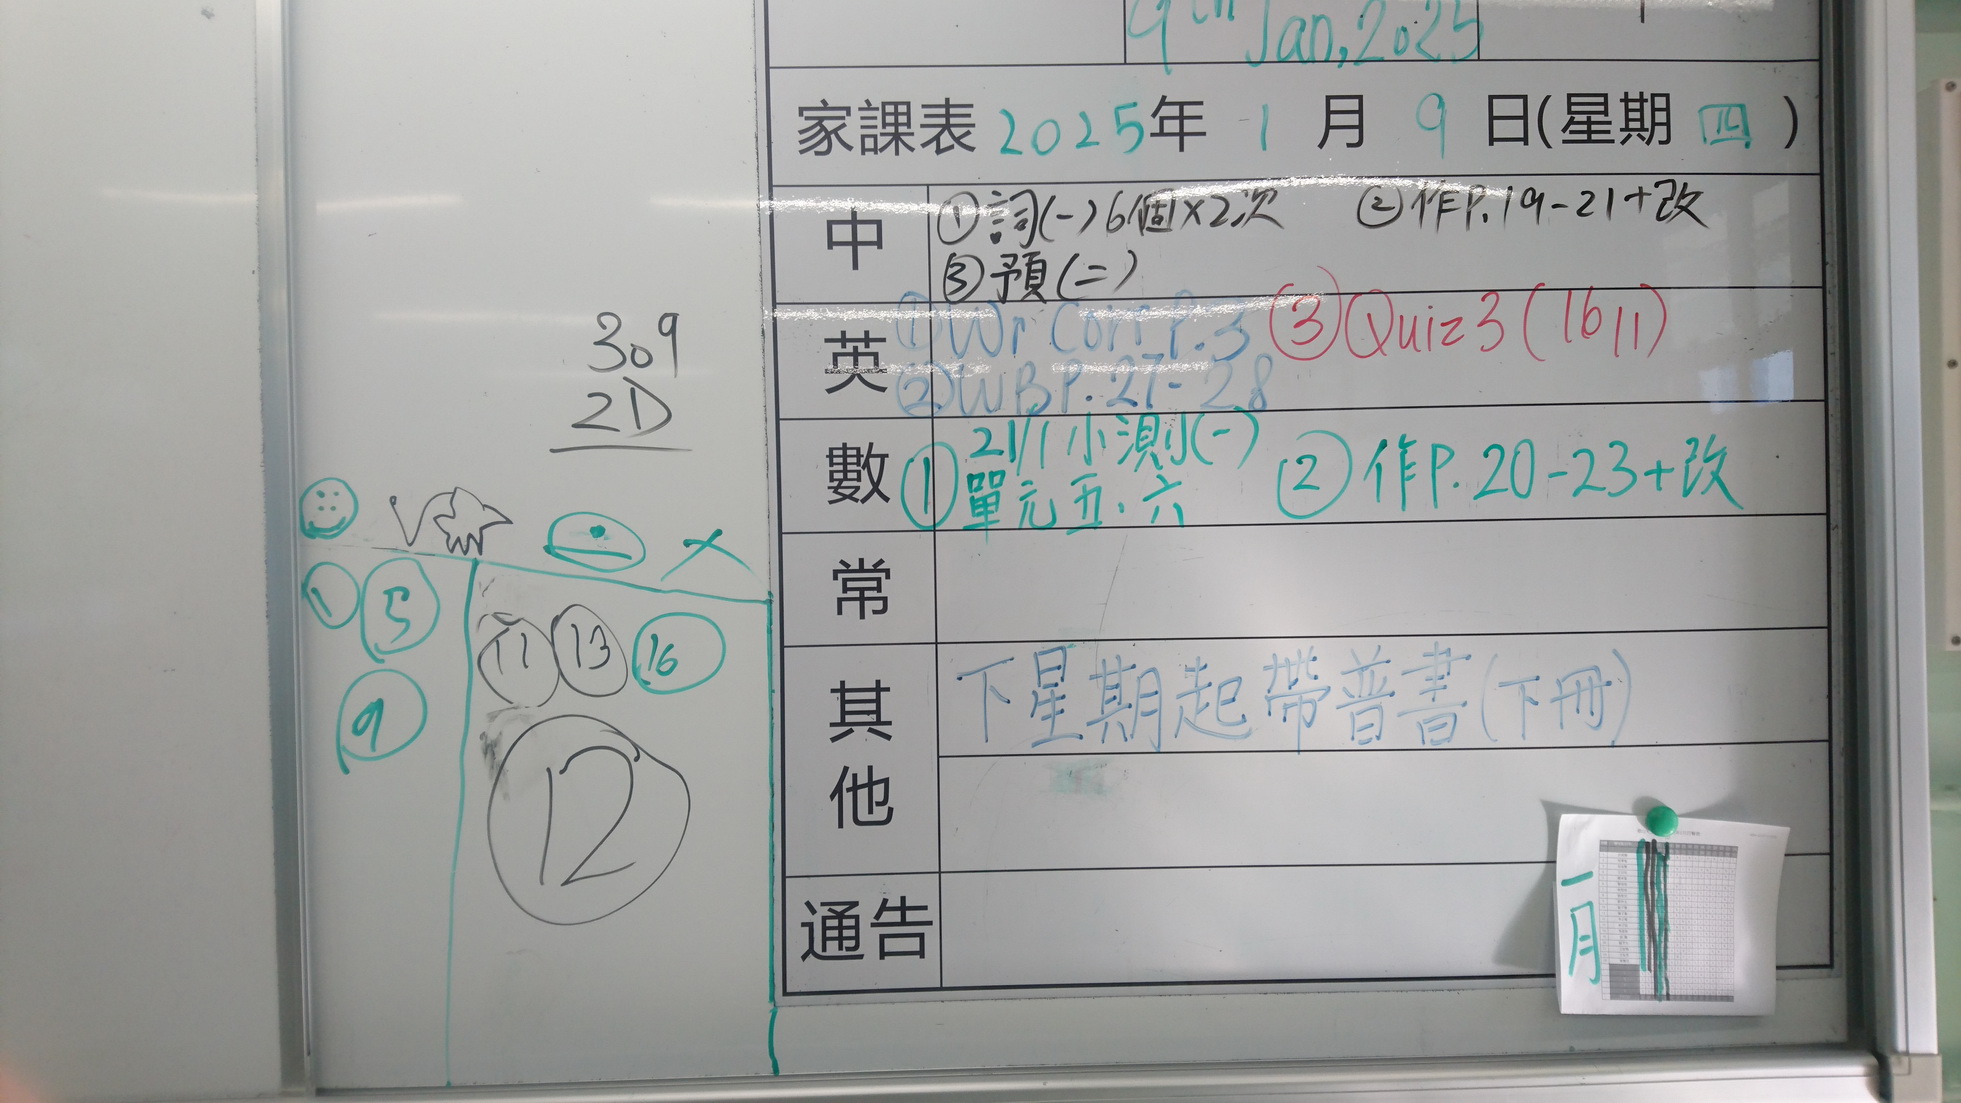 9th Jan, 2025
家課表 2025年 1 月 9 日(星期 四 )
中
①詞(一)6個×2次 ②作P.19-21+改
③預(二)
英
①Wr Corr P.3 ③Quiz 3 (16/1)
②WB P.27-28
數
① 21/1 小測(一) ② 作P. 20-23+改
單元五.六
常
其他
下星期起帶普書(下冊)
通告
一月
309
2D
1 5
9
11 13 16
12